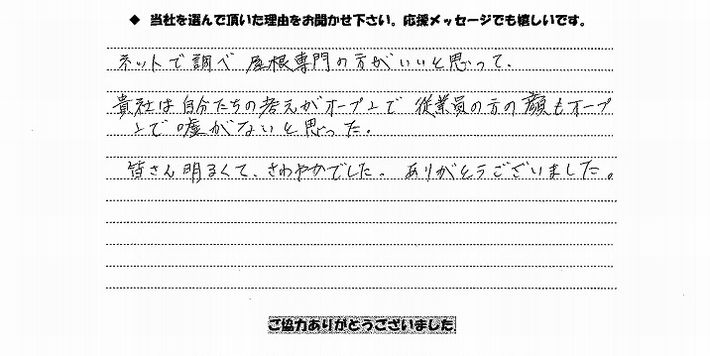 ◆ 当社を選んで頂いた理由をお聞かせ下さい。応援メッセージでも嬉しいです。
ネットで調べ 屋根専門の方がいいと思って、
貴社は自分たちの考えがオープンで 従業員の方の顔もオープ
ンで嘘がないと思った。
皆さん明るくて、さわやかでした。ありがとうございました。
ご協力ありがとうございました